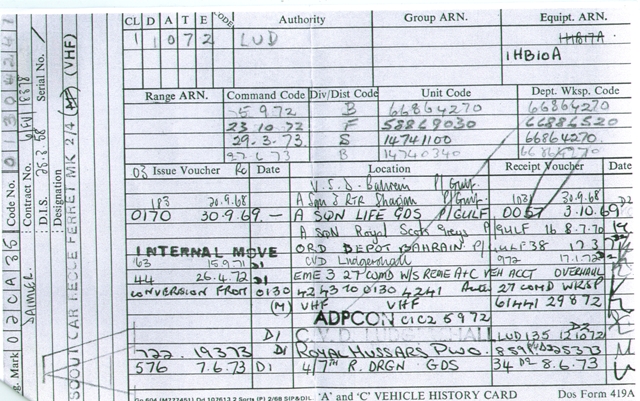 CL D A T E CODE Authority Group ARN. Equipt. ARN.
1 1 0 7 2 LUD 1HB17A
1HB10A
Range ARN. Command Code Div/Dist Code Unit Code Dept. Wksp. Code
5.9.72 B 66864270 66864270
23.10.72 F 58869030 66886520
29.3.73 S 14741100 66864270
27.6.73 B 14740340
03 Issue Voucher Date Location Receipt Voucher Date
V.S.D. Bahrein P/Gulf.
183 20.9.68 A Sqn 2 RTR Sharjah P/Gulf. 103 30.9.68
0170 30.9.69 — A SQN LIFE GDS P/GULF 0057 3.10.69
A SQN Royal Scots Greys P/GULF 16 8.7.70
INTERNAL MOVE ORD DEPOT BAHRAIN P/GULF 38
63 15.9.71 D1 CVD Ludgershall 972 17.1.72
44 26.4.72 D1 EME 3 27 COMD W/S REME A+C VEH ACCT OVERHAUL
CONVERSION FROM 0130 4243 TO 0130 4241 Auth. 27 COMD WKSP
(M) VHF VHF 61441 29872
ADPCON C1C2 5972
D1 C.V.D. LUDGERSHALL LUD 135 121072
722 19373 D1 ROYAL HUSSARS PWO. 8591 225373
576 7.6.73 D1 4/7th R. DRGN GDS 34 8.6.73
'A' and 'C' VEHICLE HISTORY CARD Dos Form 419A
g. Mark 02CA36 Code No. 01304241
DAIMLER. Contract No. 6/FV/8378
D.I.S. 28.8.68 Serial No.
Designation
SCOUT CAR RECCE FERRET MK 2/4 (VHF)